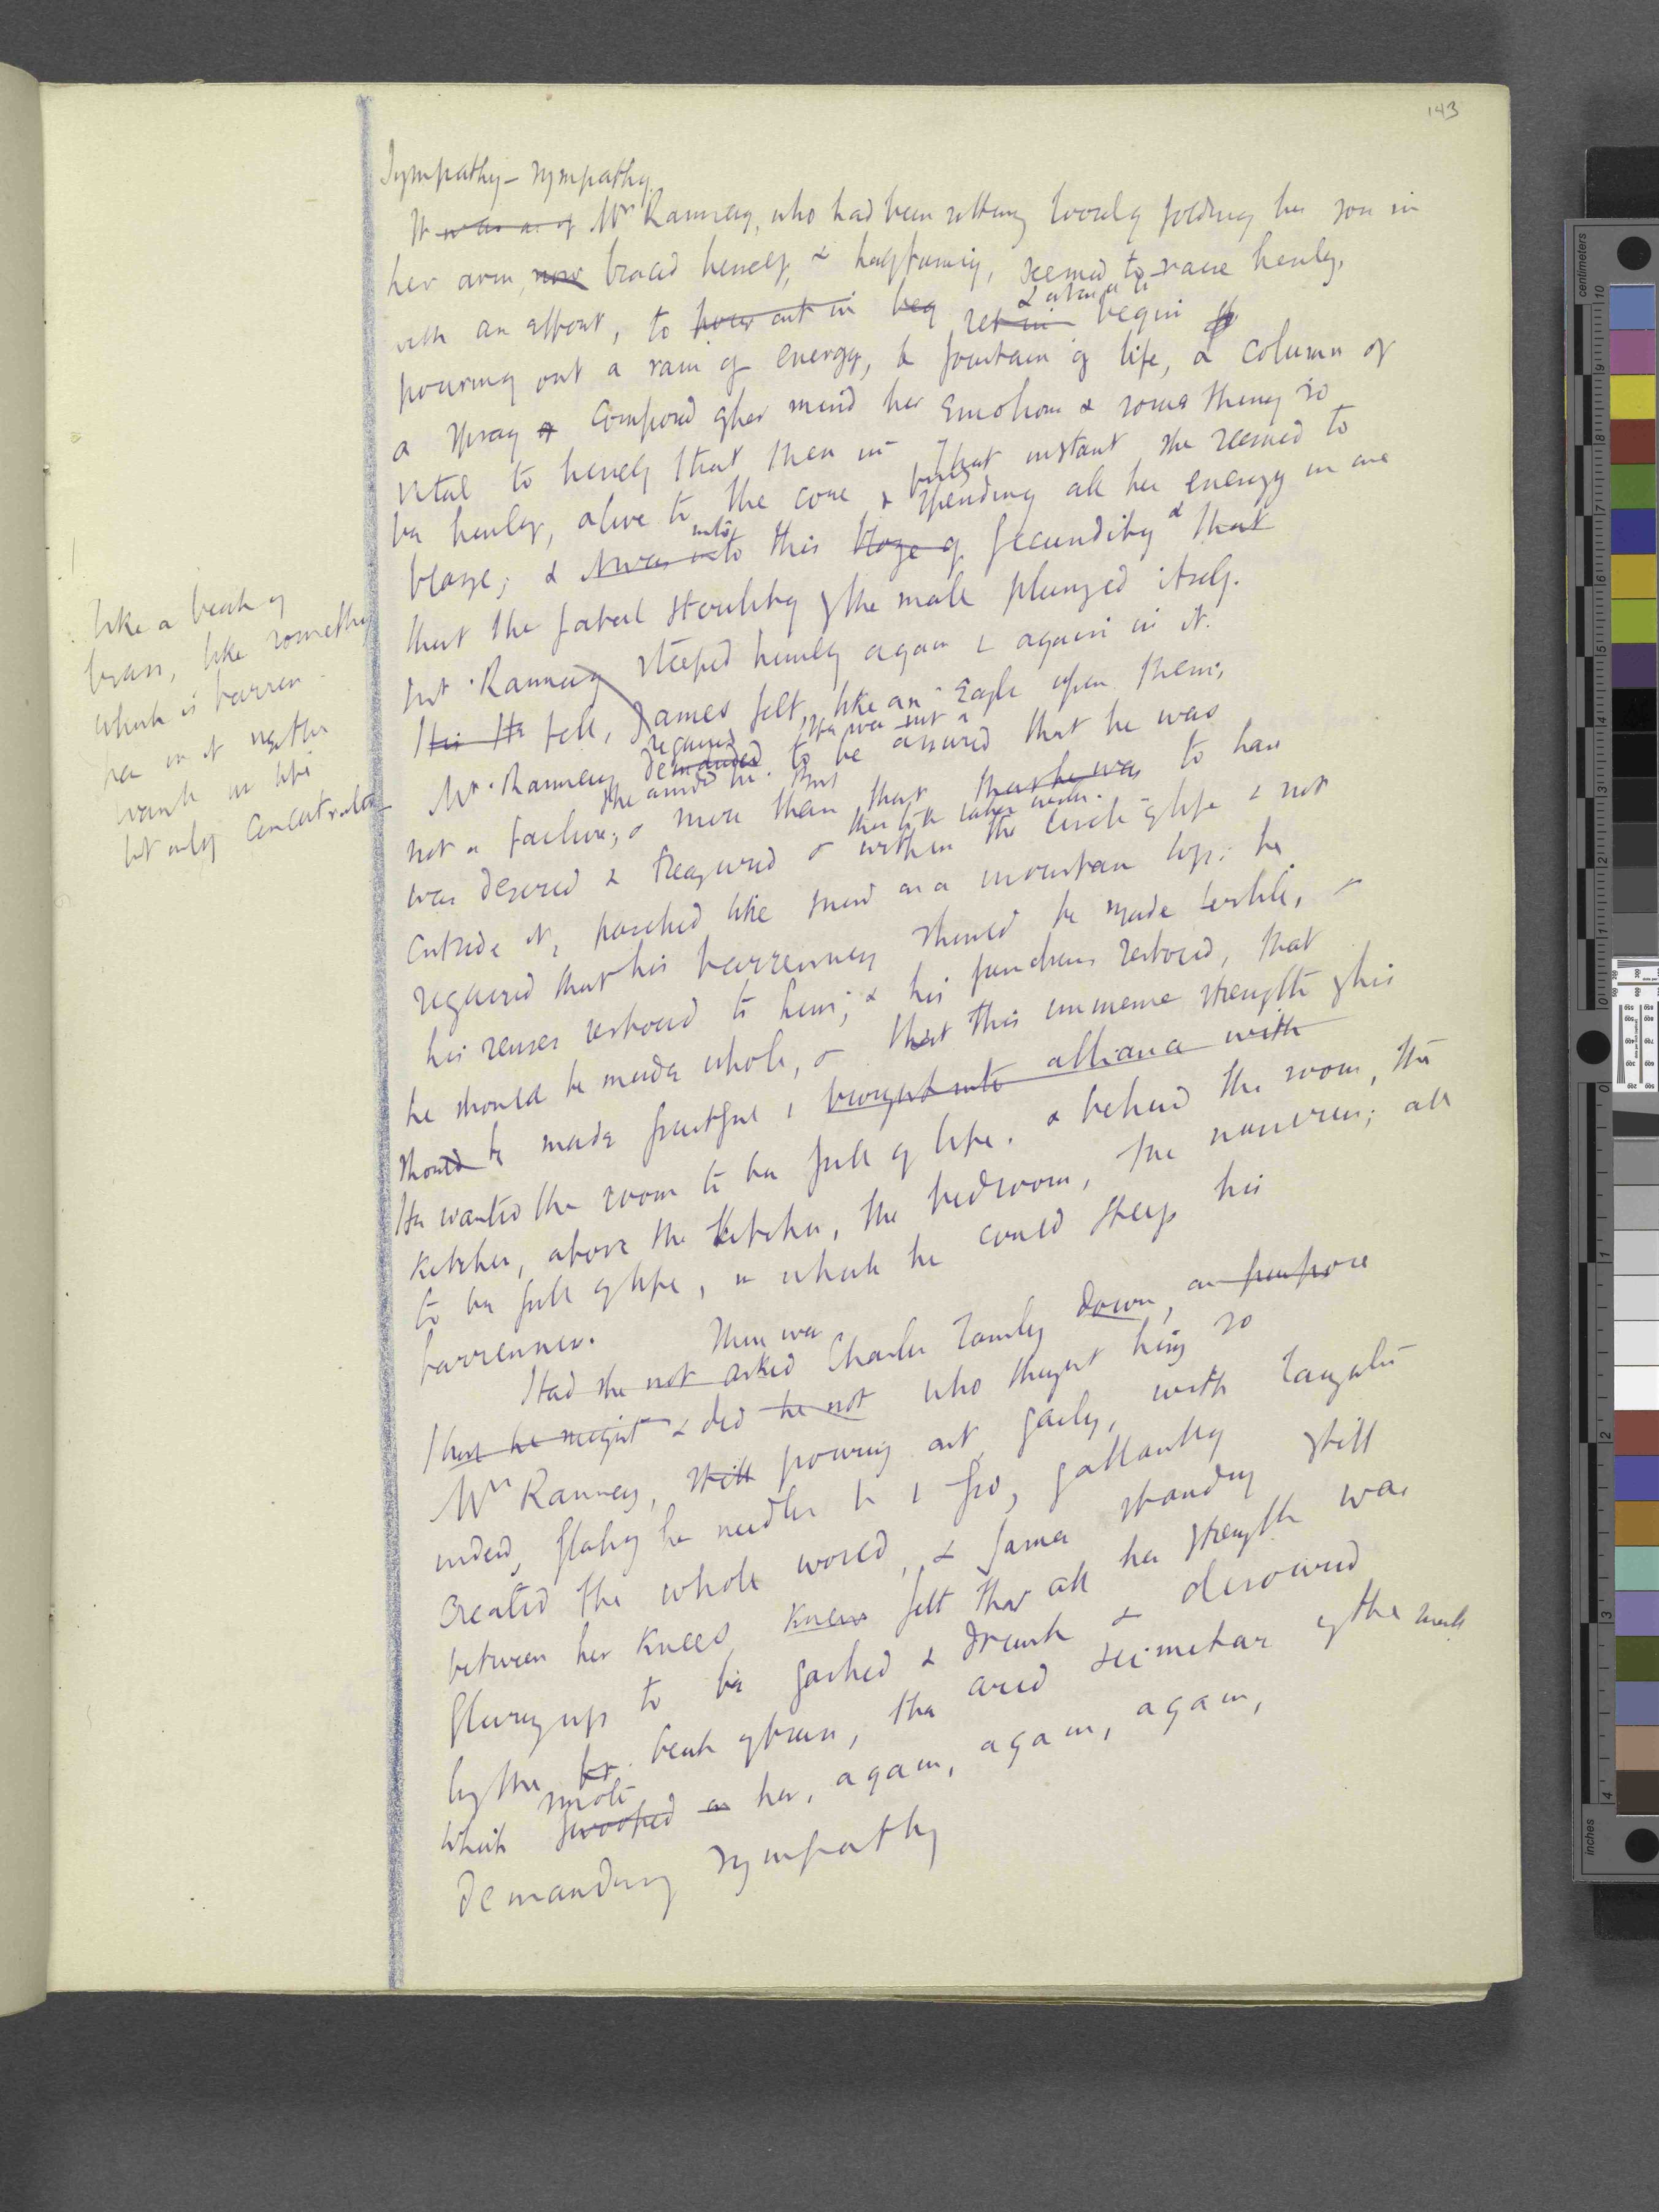 143
Sympathy – sympathy.
It was as if Mrs Ramsay, who had been sitting loosely folding her son in
her arm, now braced herself, & half turning, seemed to raise herself,
with an effort, to pour out in beg set in begin
& at once to
pouring out a rain of energy, a fountain of life, a column of
a spray of composed of her mind her emotions & some thing so
vital to herself that then in that instant she seemed to
be herself, alive to the core & spending all her energy in one
blaze; & into this blaze of fecundity & that
into
that the fatal sterility of the male plunged itself.
Mr. Ramsay steeped himself again & again in it.
His He fell, James felt, like an Eagle upon them;
Mr. Ramsay demanded to be assured that he was
required
He was not a
not a failure; & more than that that he was to have
she assured him. But
was desired & treasured & within the circle of life & not
outside it, parched like sand on a mountain top: he
required that his barrenness should be made fertile, &
his senses restored to him; & his functions restored, that
he should be made whole, & that this immense strength of his
should be made fruitful & brought into alliance with
He wanted the room to be full of life. & behind the room, the
kitchen, above the kitchen, the bedroom, the nurseries; all
to be full of life, in which he could steep his
barrenness.
There was
Had she not asked Charles Tansley down, on purpose
that he might & did he not who thought him so
Mrs Ramsay, still pouring out gaily, with laughter
indeed, flashing her needles to & fro, gallantly
created the whole world, & James standing still
between her knees knew felt that all her strength was
flaring up to be gashed & drunk & devoured
by the br. beak of brass, the arid scimitar of the male
smote
which swooped on her, again, again, again,
demanding sympathy
like a beak of
brass, like something
which is barren
has in it neither
warmth or life
but only concentration